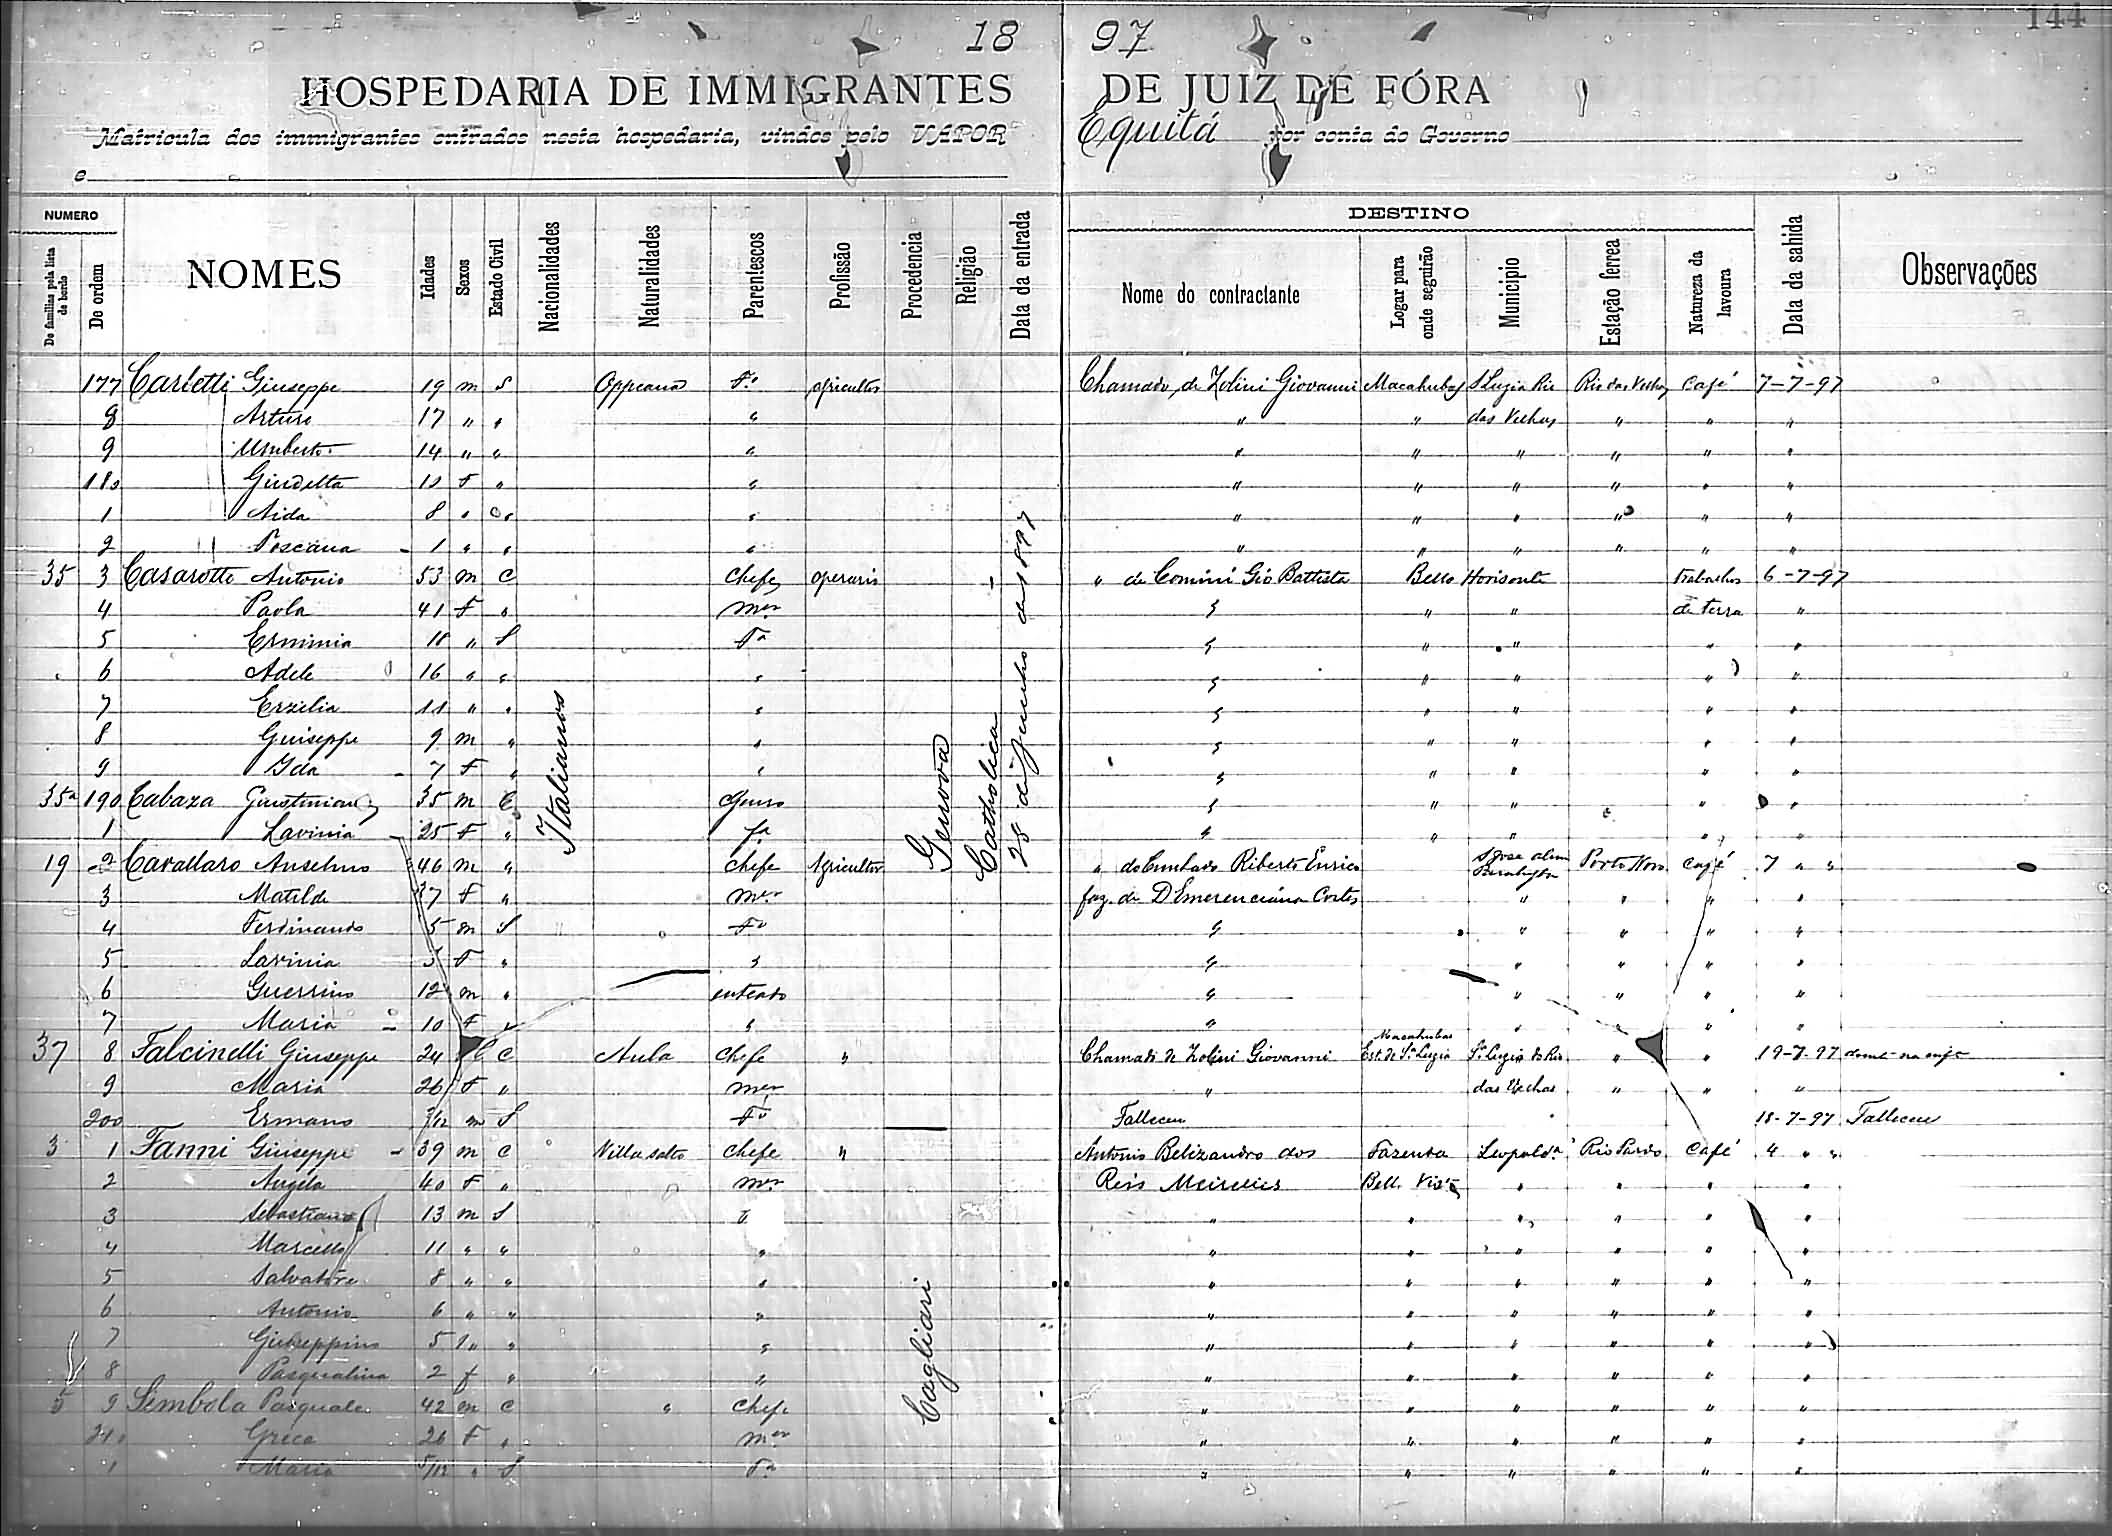 144
18 97
HOSPEDARIA DE IMMIGRANTES DE JUIZ DE FÓRA
Matricula dos immigrantes entrados nesta hospedaria, vindos pelo VAPOR Equitá por conta do Governo
e
NUMERO DESTINO
De familias pela lista de bordo De ordem NOMES Idades Sexos Estado Civil Nacionalidades Naturalidades Parentescos Profissão Procedencia Religião Data da entrada Nome do contractante Logar para onde seguirão Municipio Estação ferrea Natureza da lavoura Data da sahida Observações
Italianos Genova Catholica 28 de Junho de 1897
177 Carletti Giuseppe 19 m S Oppeano Fº agricultor Chamado de Zolini Giovanni Macahubas S Luzia Rio Rio das Velhas Café 7-7-97
8 Arturo 17 " " " " " das Velhas " " "
9 Umberto 14 " " " " " " " " "
180 Giudetta F " " " " " " " "
1 Aida 8 " " " " " " " "
2 Toscana 1 " " " " " " " " "
35 3 Casarotto Antonio 53 m C Chefe operario " de Comini Gio Battista Bello Horisonte trabalhos 6-7-97
4 Paola 41 F " mer " " " de terra "
5 Erminia 18 " S Fa " " " " "
6 Adele 16 " " " " " " " "
7 Erzilia 11 " " " " " " " "
8 Guiseppe 9 m " " " " " " "
9 Ida 7 F " " " " " " "
35a 190 Cabaza 35 m C Genro " " " " "
1 Lavinia 25 F " fa " " " " "
19 2 Cavallaro Anselmo 46 m " Chefe Agricultor " do Cunhado Riberto Enrico S José alem Parahyba Porto Novo café 7 " "
3 Matilde 37 F " mer faz. de D Emerenciana Cortes " " " "
4 Ferdinando 5 m S Fo " " " " "
5 Lavinia 3 F " " " " " " "
6 Guerrino 12 m " enteado " " " " "
7 Maria 10 F " " " " " " "
37 8 Falcinelli Giuseppe 24 C Chefe " Chamado de Zolini Giovanni Macahubas Est. de Sta Luzia Sta Luzia do Rio " " 19-7-97
9 Maria 26 F " mer " das Velhas " " "
200 Ermano 7/12 m S Fo Falleceu 18-7-97 Falleceu
3 1 Fanni Giuseppe 39 m C Villa salto Chefe " Antonio Belizandro dos Fazenda Leopoldª Rio Pardo Café 4 " "
2 Angela 40 F " mer Reis Meirelles Bell. Vista " " " "
3 Sebastiano 13 m S " " " " " "
4 Marcello 11 " " " " " " " " "
5 Salvatore 8 " " " " " " " " "
6 Antonio 6 " " " " " " " " "
7 Giuseppino 5 " " " " " " " " "
8 Pasqualina 2 f " " " " " " " "
Cagliari
5 9 Sembola Pasquale 42 m C " Chefe " " " " " "
210 Greca 26 F " mer " " " " " "
1 Maria 5/12 " S Fa " " " " " "